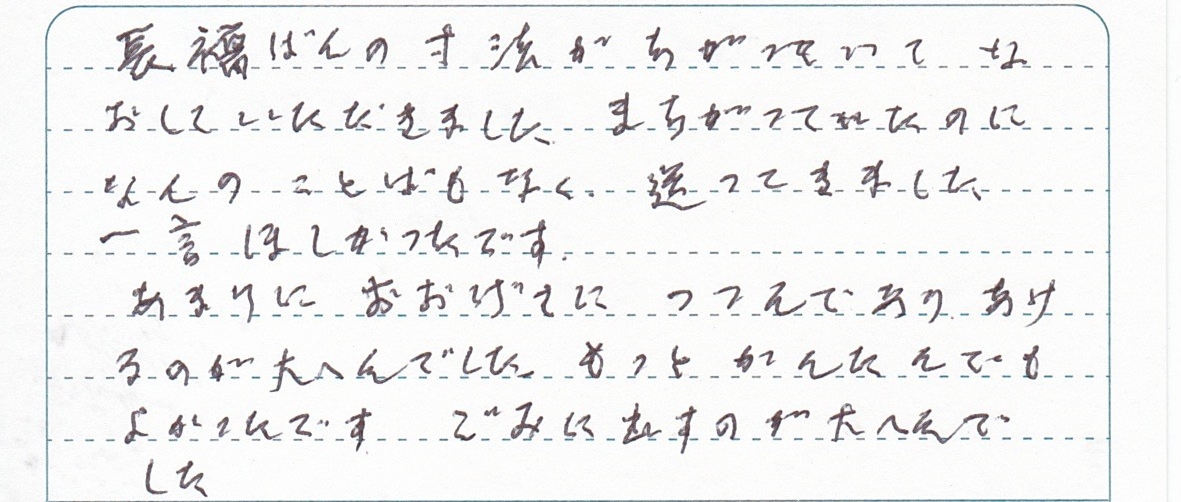 長襦ばんの寸法がちがっていてな
おしていただきました、まちがってれたのに
なんのことばもなく、送ってきました、
一言ほしかったです。
あまりに おおげさに つつんであり あけ
るのが大へんでした。もっと かんたんでも
よかったです ごみに出すのが大へんで
した